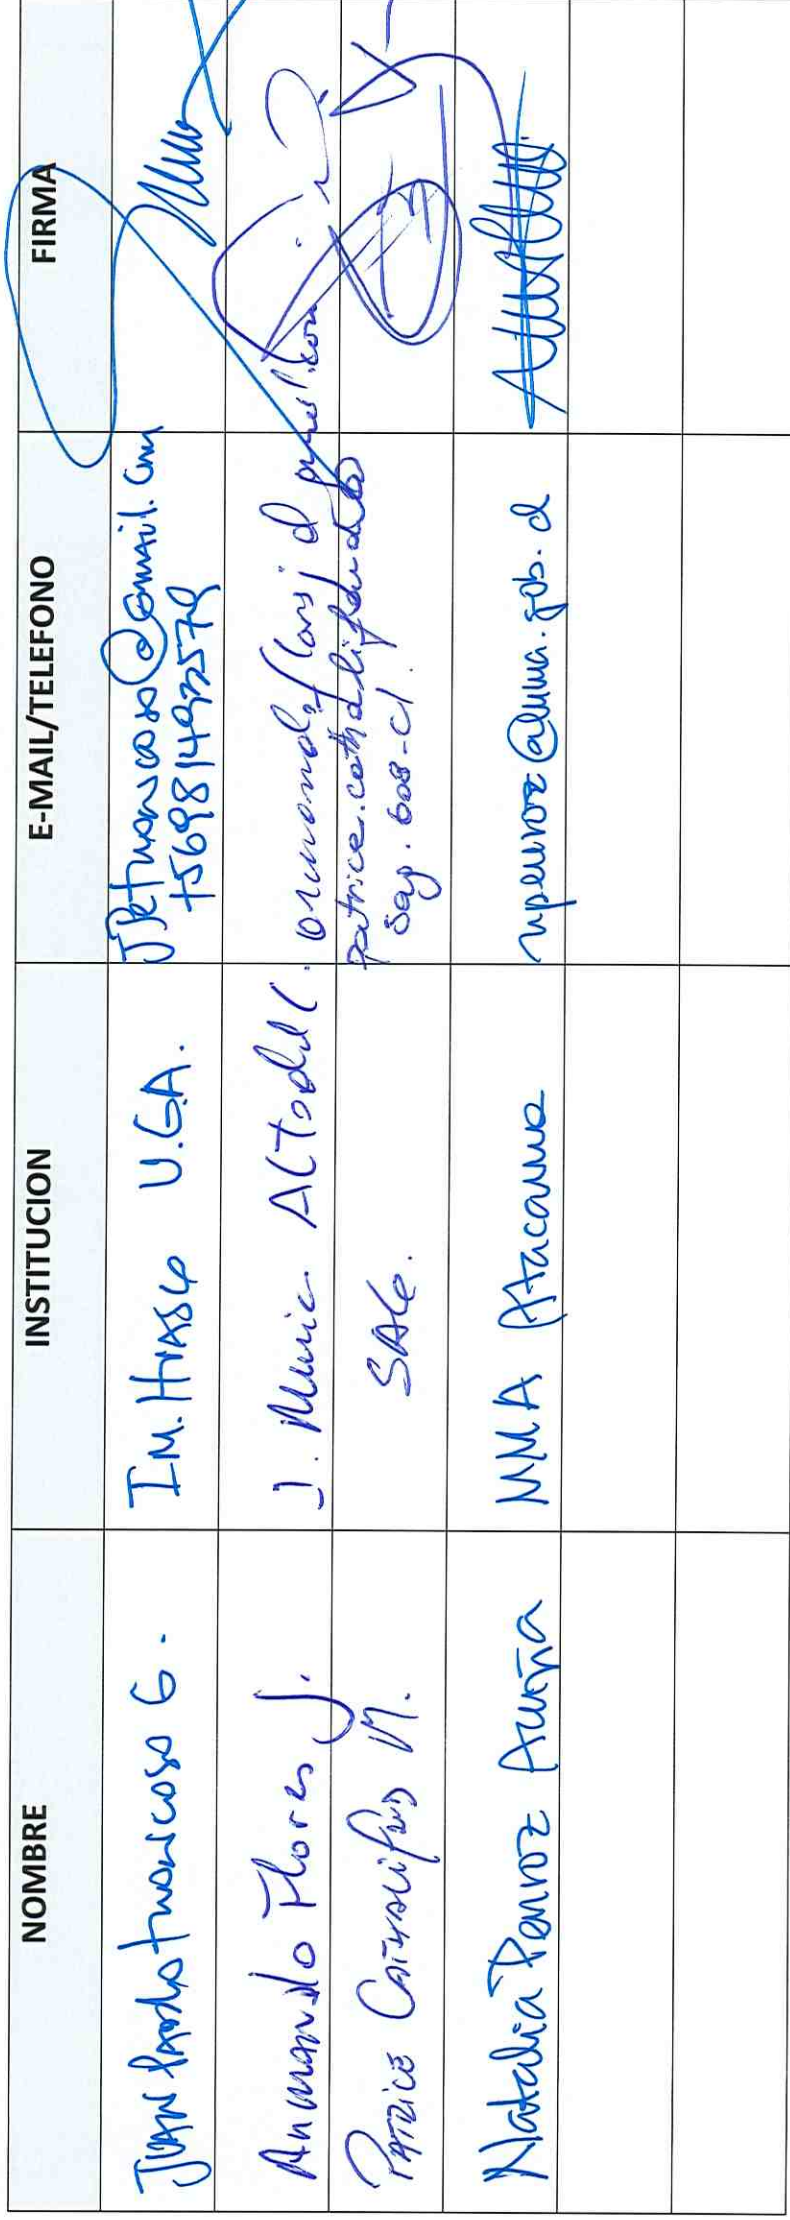 NOMBRE INSTITUCION E-MAIL/TELEFONO FIRMA
JUAN Pablo Troncoso G. I.M. HUASCO U.G.A. JPetroncoso@gmail.com
+56981493257
Armando Flores J. J. Munic. Alto del C.
PATRICE CATHALIFAUD M. SAG. patrice.cathalifaud@
sag.gob.cl
Natalia Penroz Acuña MMA Atacama npenroz@mma.gob.cl